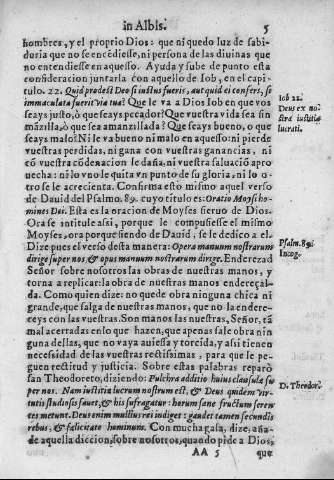 in Albis. 5
hombres, y el proprio Dios: que ni quedo luz de sabi-
duria que no se encēdiesse, ni persona de las diuinas que
no entendiesse en aquesso. Ayuda y sube de punto esta
consideracion juntarla con aquello de Iob, en el capi-
tulo. 22. Quid prodest Deo si iustus fueris, aut quid ei confers, se
immaculata fuerit via tua? Que le va a Dios Iob en que vos
seays justo, ò que seays pecador? Que vuestra vida sea sin
māzilla, ò que sea amanzillada? Que seays bueno, o que
seays malo? Ni le va bueno ni malo en aquesso: ni pierde
vuestras perdidas, ni gana con vuestras ganancias, ni
cō vuestra cōdenacion le daña, ni vuestra saluaciō apro
uecha: ni lo vno le quita vn punto de su gloria, ni lo o-
tro se le acrecienta. Confirma esto mismo aquel verso
de Dauid del Psalmo. 89. cuyo titulo es: Oratio Moysi ho-
minis Dei. Esta es la oracion de Moyses sieruo de Dios.
Ora se intitule assi, porque le compusiesse el mismo
Moyses, ora porque siendo de Dauid, se le dedico a el.
Dize pues el verso desta manera: Opera manuum nostrarum
dirige super nos, & opus manuum nostrarum dirige. Enderezad
Señor sobre nosotros las obras de nuestras manos, y
torna a replicar: la obra de nuestras manos endereçal-
da. Como quien dize: no quede obra ninguna chica ni
grande, que salga de nuestras manos, que no la endere-
reys con las vuestras. Son manos las nuestras, Señor, tā
mal acertadas en lo que hazen, que apenas sale obra nin
guna dellas, que no vaya auiessa y torcida, y assi tienen
necessidad de las vuestras rectissimas, para que le pe-
guen rectitud y justicia. Sobre estas palabras reparò
san Theodoreto, diziendo: Pulchra additio huius clausulæ su
per nos. Nam iustitia lucrum nostrum est, & Deus quidem vir-
tutis studiosis fauet, & his suffragatur: horum sane fructum seren
tes metunt. Deus enim nullius rei indiget: gaudet tamen secundis
rebus, & felicitate hominum. Con mucha gala, dize, aña-
de aquella diccion, sobre nosotros, quando pide a Dios,
AA 5 que
Iob 22.
Deus ex no
stra iustitia
lucrati.
Psalm. 89.
Incog.
D. Theodor.